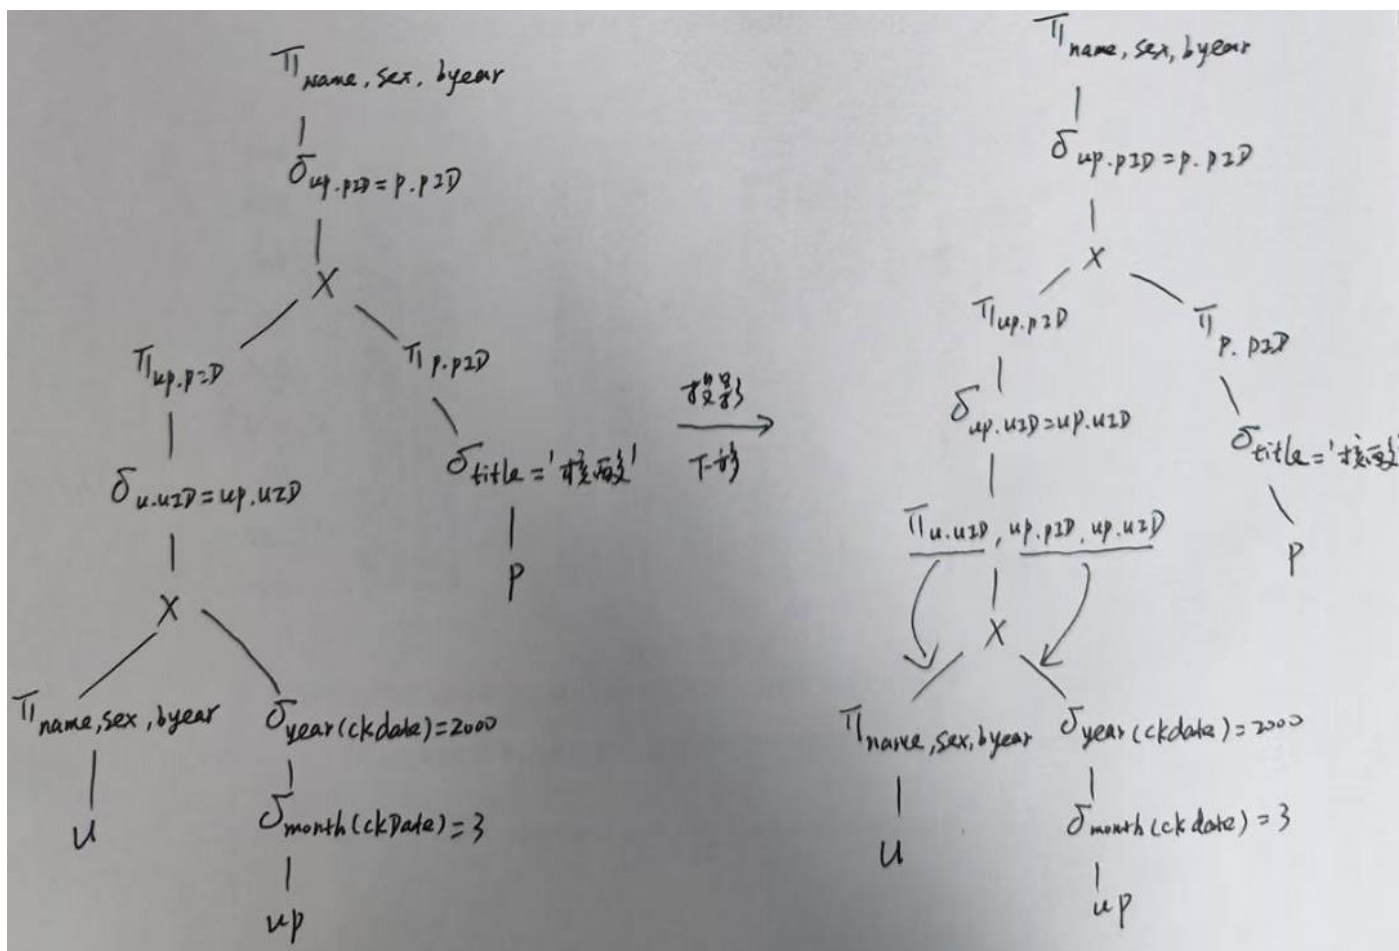 π name, sex, byear
δ up.pID = p.pID
X
π up.pID
π p.pID
δ u.uID = up.uID
δ title = '核酸'
P
X
π name, sex, byear
δ year(ckdate)=2000
u
δ month(ckDate)=3
up
投影
下移
π name, sex, byear
δ up.pID = p.pID
X
π up.pID
π p.pID
δ up.uID = up.uID
δ title = '核酸'
π u.uID, up.pID, up.uID
P
X
π name, sex, byear
δ year(ckdate)=2000
u
δ month(ckdate)=3
up